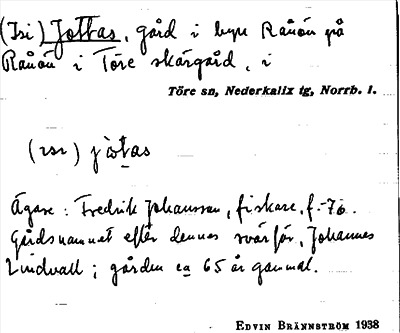 (Isi) Jottas, gård i byn Rånön på
Rånön i Töre skärgård, i
Töre sn, Nederkalix tg, Norrb. l.
(ısı) jòtas
Ägare: Fredrik Johansson, fiskare, f.-76.
Gårdsnamnet efter dennes svärfar, Johannes
Lindvall; gården ca 65 år gammal.
EDVIN BRÄNNSTRÖM 1938